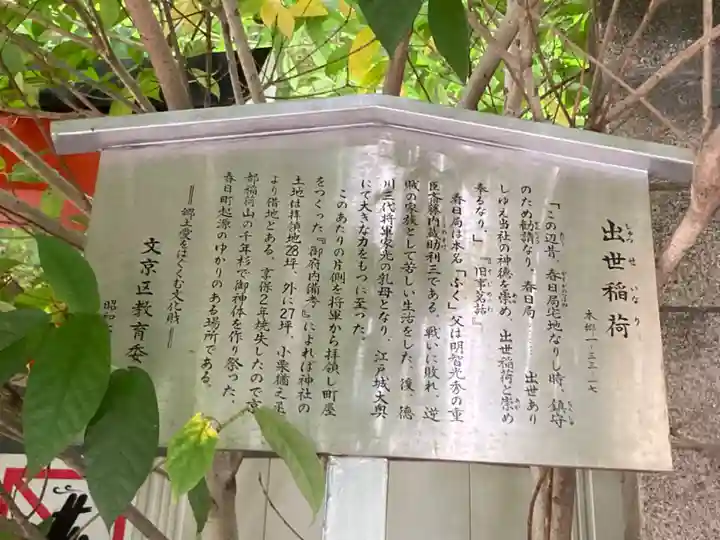 出世稲荷
しゅっせいなり
本郷一ー三三ー一七
「この辺昔、春日局宅地なりし時、鎮守
のため勧請なり、春日局…… 出世あり
しゆえ当社の神徳を崇め、出世稲荷と崇め
奉るなり。」 『旧事茗話』
春日局は本名「ふく」父は明智光秀の重
臣斎藤内蔵助利三である。戦いに敗れ、逆
賊の家族として苦しい生活をした。後、徳
川三代将軍家光の乳母となり、江戸城大奥
にて大きな力をもつに至った。
このあたりの片側を将軍から拝領し町屋
をつくった『御府内備考』によれば神社の
土地は拝領地28坪、外に27坪、小栗
より借地とある。享保2年焼失したので京
都稲荷山の千年杉で御神体を作り祭った。
春日町起源のゆかりのある場所である。
郷土愛をはぐくむ文化財
文京区教育委
昭和